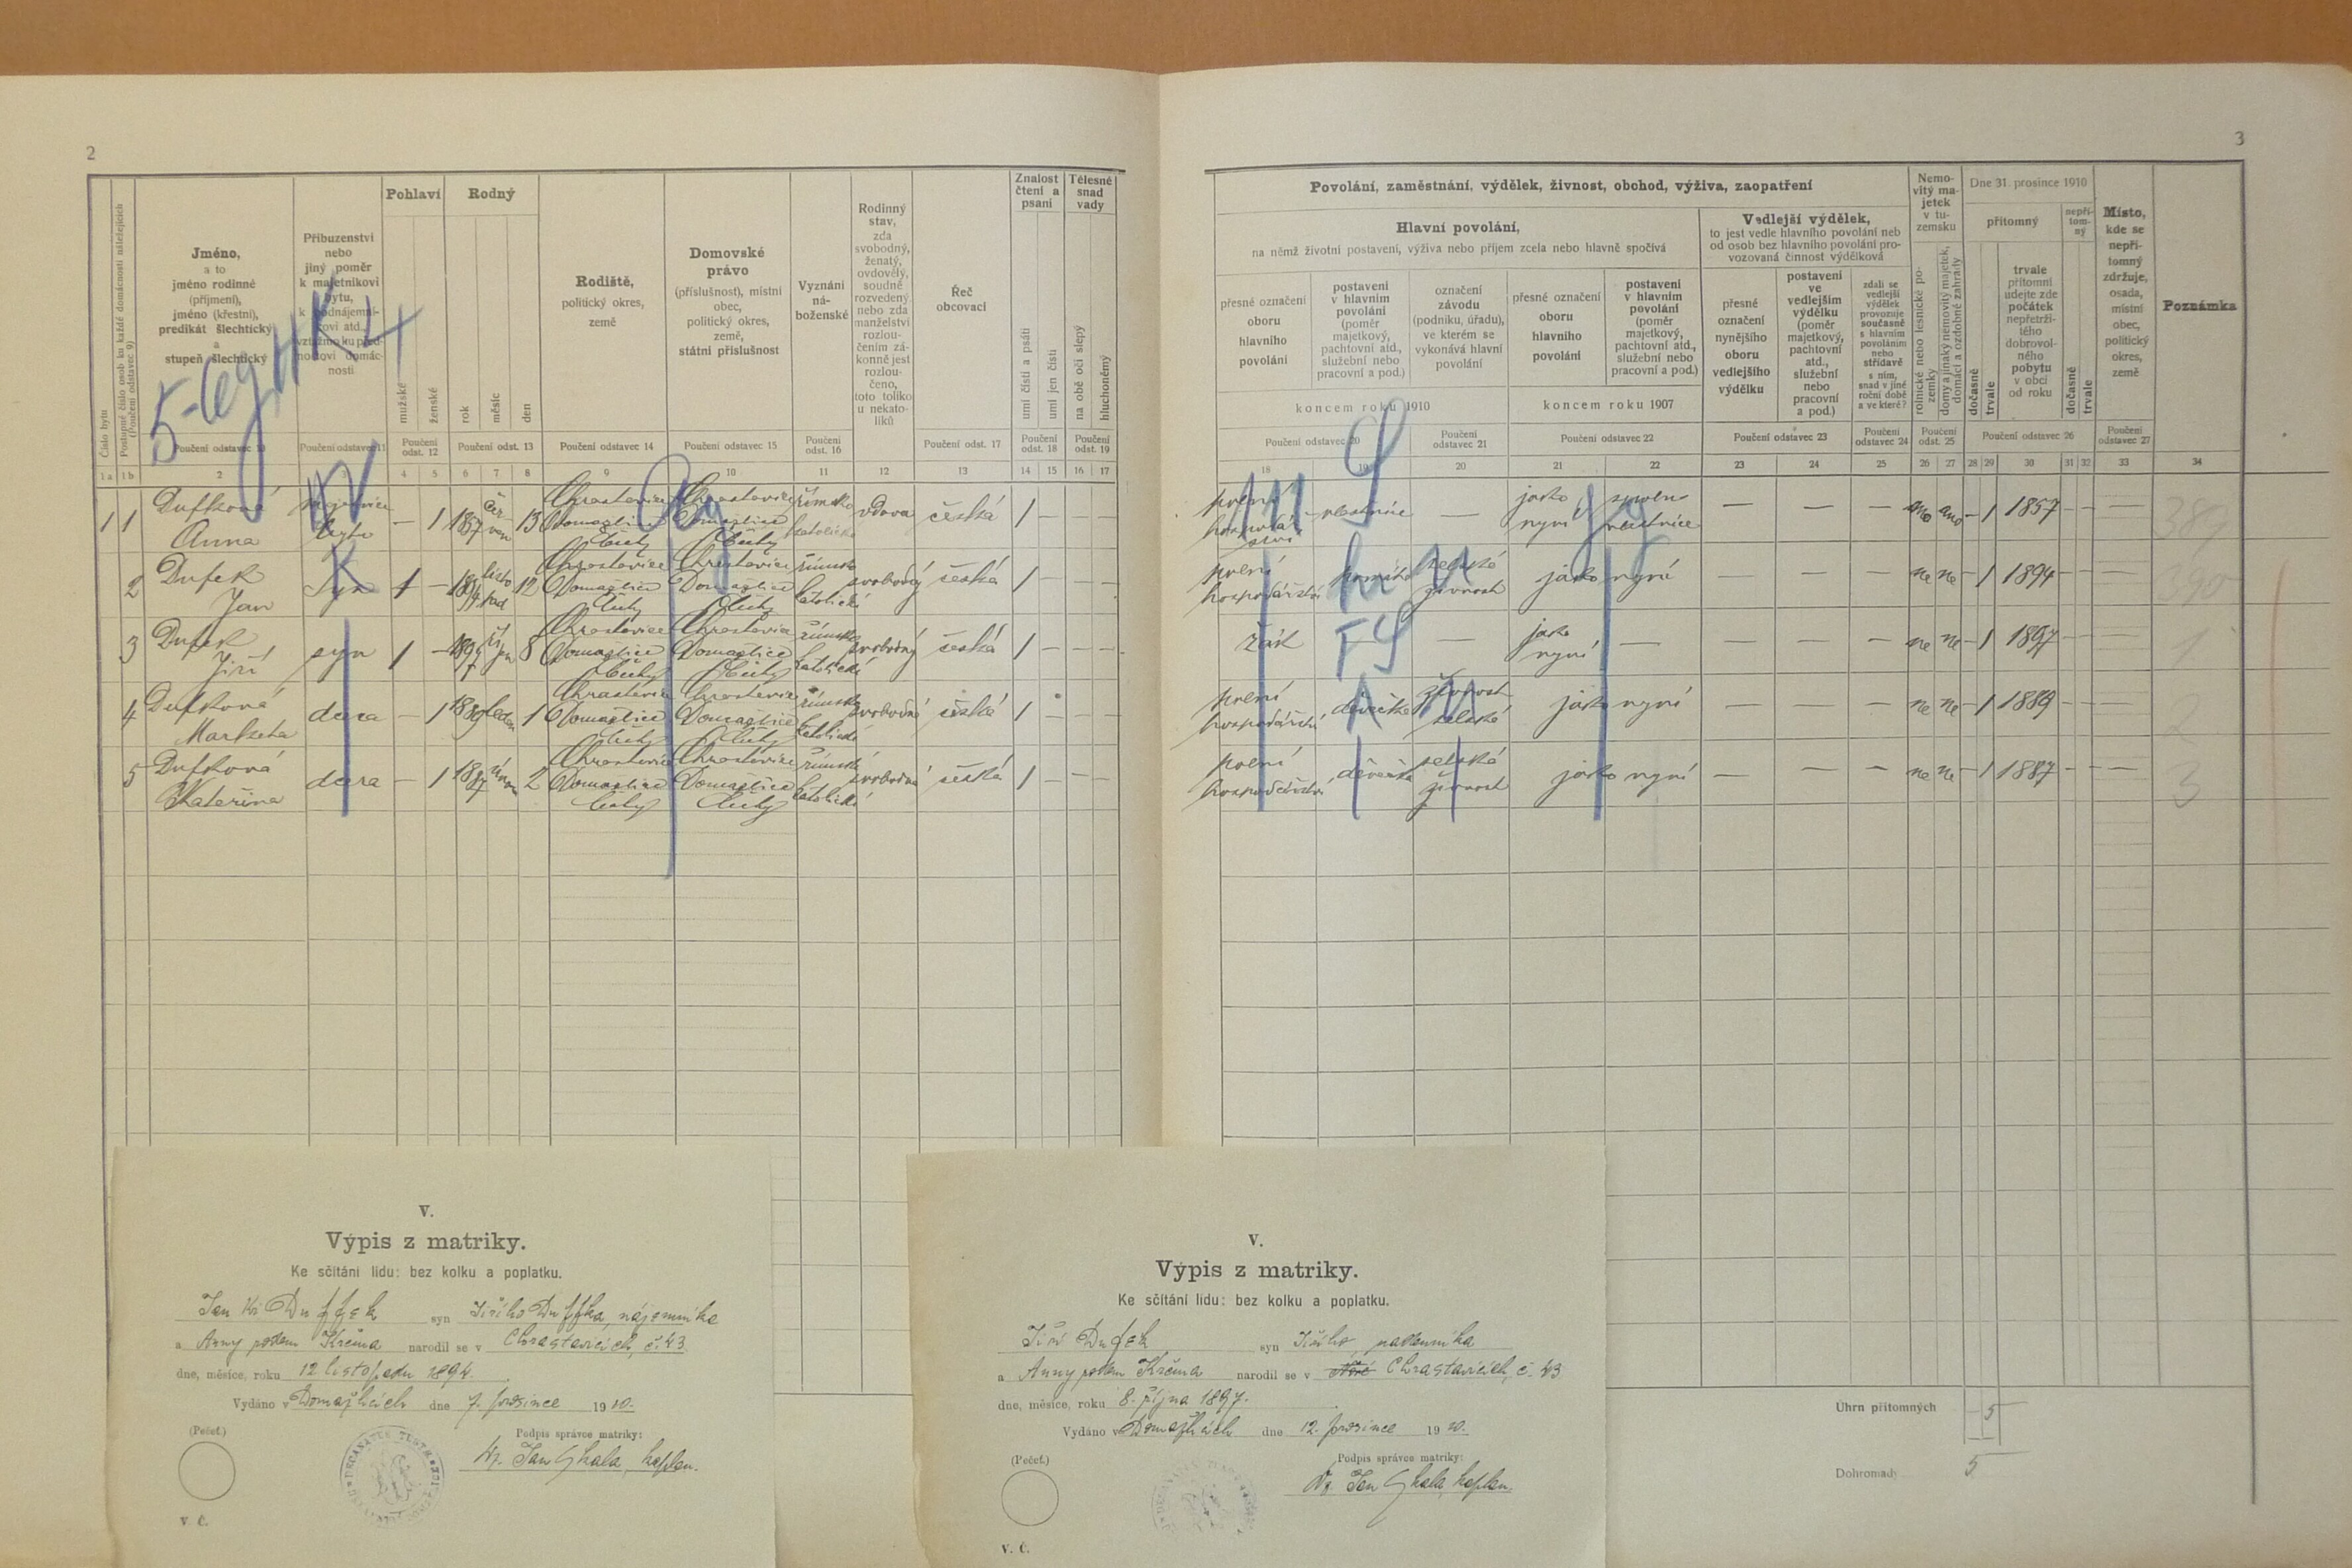 2
3
Číslo bytu
Postupné číslo osob ku každé domácnosti náležejících
(Poučení odstavec 9)
Jméno,
a to
jméno rodinné
(příjmení),
jméno (křestní),
predikát šlechtický
a
stupeň šlechtický
Poučení odstavec 10
Příbuzenství
nebo
jiný poměr
k majetníkovi
bytu,
k podnájemní-
kovi atd.,
vztažmo ku před-
nostovi domác-
nosti
Poučení odstavec 11
Pohlaví
mužské
ženské
Poučení
odst. 12
Rodný
rok
měsíc
den
Poučení odst. 13
Rodiště,
politický okres,
země
Poučení odstavec 14
Domovské
právo
(příslušnost), místní
obec,
politický okres,
země,
státní příslušnost
Poučení odstavec 15
Vyznání
ná-
boženské
Poučení
odst. 16
Rodinný
stav,
zda
svobodný,
ženatý,
ovdovělý,
soudně
rozvedený
nebo zda
manželství
rozlou-
čením zá-
konně jest
rozlou-
čeno,
toto toliko
u nekato-
líků
Řeč
obcovací
Poučení odst. 17
Znalost
čtení a
psaní
umí čísti a psáti
umí jen čísti
Poučení
odst. 18
Tělesné
snad
vady
na obě oči slepý
hluchoněmý
Poučení
odst. 19
Povolání, zaměstnání, výdělek, živnost, obchod, výživa, zaopatření
Hlavní povolání,
na němž životní postavení, výživa nebo příjem zcela nebo hlavně spočívá
přesné označení
oboru
hlavního
povolání
postavení
v hlavním
povolání
(poměr
majetkový,
pachtovní atd.,
služební nebo
pracovní a pod.)
označení
závodu
(podniku, úřadu),
ve kterém se
vykonává hlavní
povolání
koncem roku 1910
Poučení odstavec 20
Poučení
odstavec 21
přesné označení
oboru
hlavního
povolání
postavení
v hlavním
povolání
(poměr
majetkový,
pachtovní atd.,
služební nebo
pracovní a pod.)
koncem roku 1907
Poučení odstavec 22
Vedlejší výdělek,
to jest vedle hlavního povolání neb
od osob bez hlavního povolání pro-
vozovaná činnost výdělková
přesné
označení
nynějšího
oboru
vedlejšího
výdělku
postavení
ve
vedlejším
výdělku
(poměr
majetkový,
pachtovní
atd.,
služební
nebo
pracovní
a pod.)
Poučení odstavec 23
zdali se
vedlejší
výdělek
provozuje
současně
s hlavním
povoláním
nebo
střídavě
s ním,
snad v jiné
roční době
a ve které?
Poučení
odstavec 24
Nemo-
vitý ma-
jetek
v tu-
zemsku
rolnické nebo lesnické po-
zemky
domy a jinaký nemovitý majetek,
domácí a ozdobné zahrady
Poučení
odst. 25
Dne 31. prosince 1910
přítomný
dočasně
trvale
trvale
přítomní
udejte zde
počátek
nepřetrži-
tého
dobrovol-
ného
pobytu
v obci
od roku
nepří-
tom-
ný
dočasně
trvale
Poučení odstavec 26
Místo,
kde se
nepří-
tomný
zdržuje,
osada,
místní
obec,
politický
okres,
země
Poučení
odstavec 27
Poznámka
1a 1b 2 3 4 5 6 7 8 9 10 11 12 13 14 15 16 17
18 19 20 21 22 23 24 25 26 27 28 29 30 31 32 33 34
1 1 Dufková Anna bytu — 1 1857 červen 13 Chrastavice Domažlice Čechy Chrastavice Domažlice Čechy římsko katolické vdova česká 1 — — —
polní hospodářství — — jako nyní — — — ano ano — 1 1857 — — — 389
2 Dufek Jan Syn 1 — 1894 listopad 12 Chrastavice Domažlice Čechy Chrastavice Domažlice Čechy římsko katolické svobodný česká 1 — — —
polní hospodářství selská živnost jako nyní — — — ne ne — 1 1894 — — — 390
3 Dufek Jiří syn 1 — 1897 říjen 8 Chrastavice Domažlice Čechy Chrastavice Domažlice Čechy římsko katolické svobodný česká 1 — — —
žák — jako nyní — — — — ne ne — 1 1897 — — — 1
4 Dufková Markéta dcera — 1 1889 leden 1 Chrastavice Domažlice Čechy Chrastavice Domažlice Čechy římsko katolické svobodná česká 1 — — —
polní hospodářství děvečka živnost selská jako nyní — — — ne ne — 1 1889 — — — 2
5 Dufková Kateřina dcera — 1 1887 únor 2 Chrastavice Domažlice Čechy Chrastavice Domažlice Čechy římsko katolické svobodná česká 1 — — —
polní hospodářství děvečka selská živnost jako nyní — — — ne ne — 1 1887 — — — 3
V.
Výpis z matriky.
Ke sčítání lidu: bez kolku a poplatku.
Jan Duffek syn Jiřího Duffka, nájemníka
a Anny rozen Krčma narodil se v Chrastavicích, č. 43
dne, měsíce, roku 12 listopadu 1894.
Vydáno v Domažlicích dne 7. prosince 1910.
(Pečeť.)
Podpis správce matriky:
kaplan.
V. Č.
V.
Výpis z matriky.
Ke sčítání lidu: bez kolku a poplatku.
Jiří Dufek syn Jiřího,
a Anny rozen Krčma narodil se v Chrastavicích, č. 43
dne, měsíce, roku 8. října 1897.
Vydáno v Domažlicích dne 12. prosince 1910.
(Pečeť.)
Podpis správce matriky:
kaplan.
V. Č.
Úhrn přítomných — 5
Dohromady 5